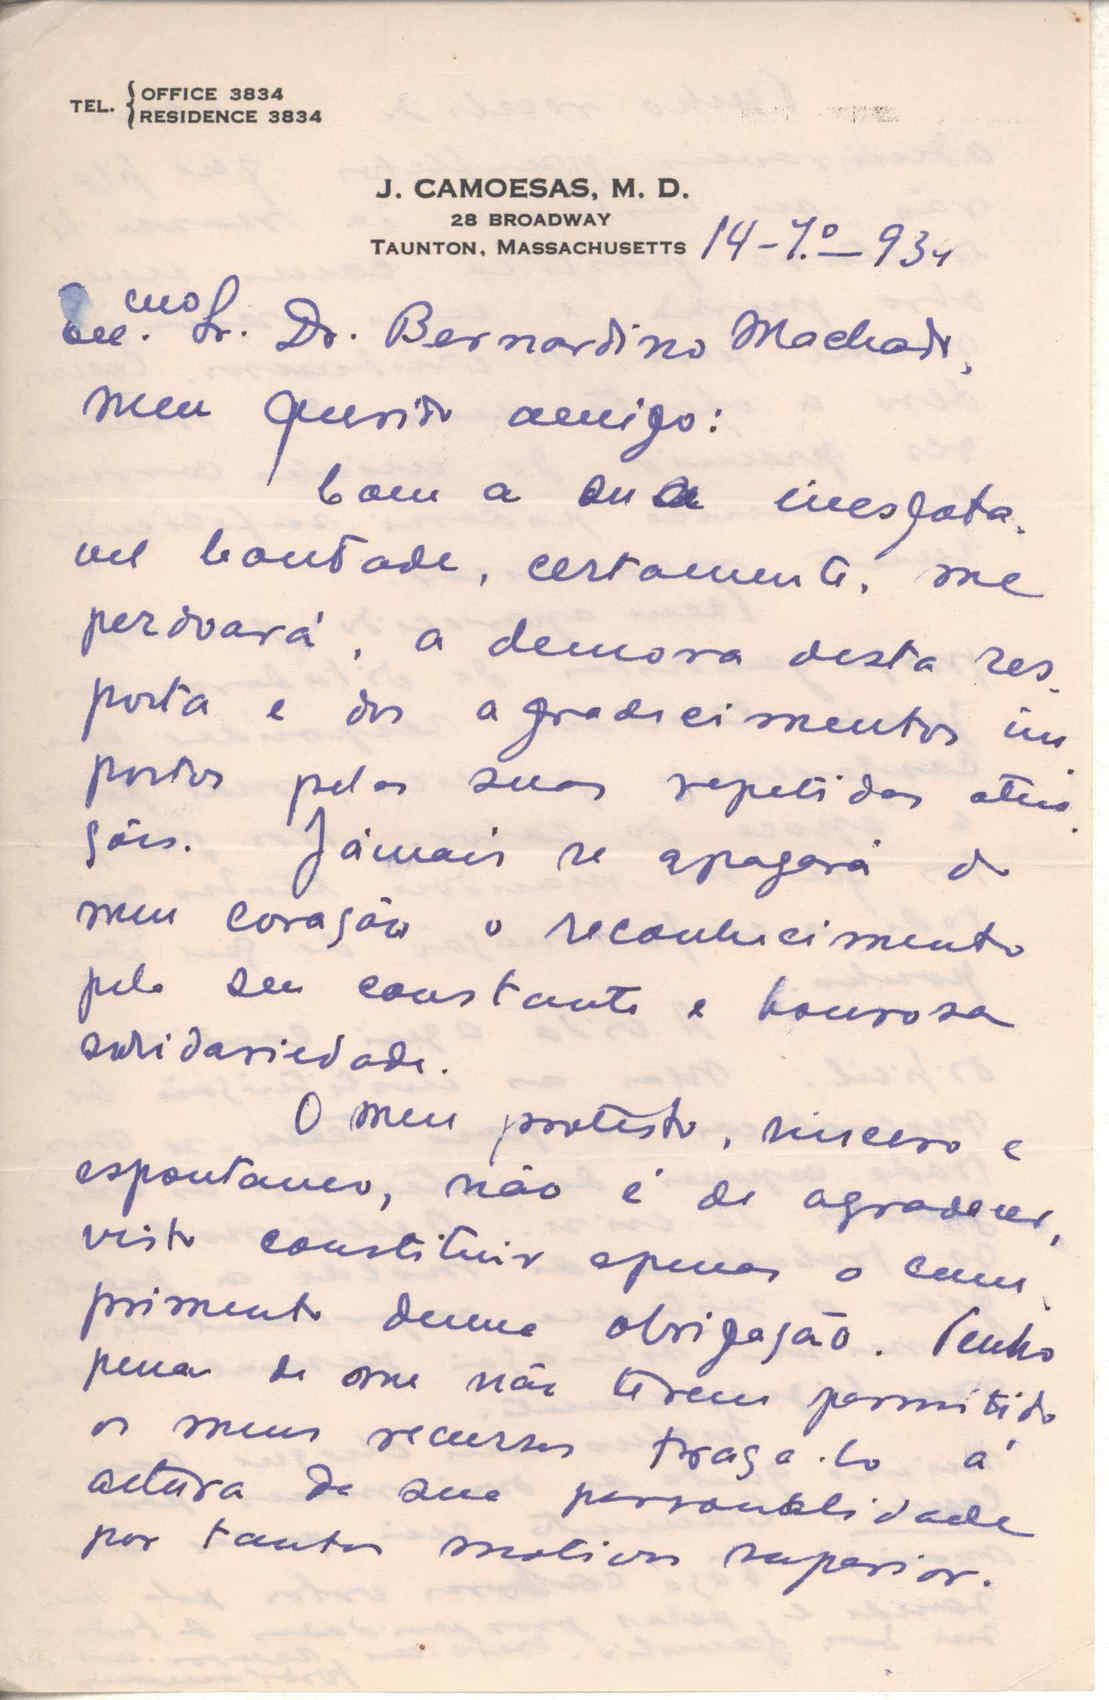 TEL. { OFFICE 3834
RESIDENCE 3834
J. CAMOESAS, M. D.
28 BROADWAY
TAUNTON, MASSACHUSETTS 14-7.º-934
Exc.mo Sr. Dr. Bernardino Machado,
meu querido amigo:
Com a sua inesgota-
vel bondade, certamente, me
perdoará, a demora desta res-
posta e dos agradecimentos im
postos pelas suas repetidas aten-
ções. Jámais se apagará do
meu coração o reconhecimento
pela seu constante e honrosa
solidariedade.
O meu protesto, sincero e
espontaneo, não é de agradecer,
visto constituir apenas o cum-
primento duma obrigação. Tenho
pena de me não terem permitido
os meus recursos traça-lo á
altura da sua personalidade
por tantos motivos superior.